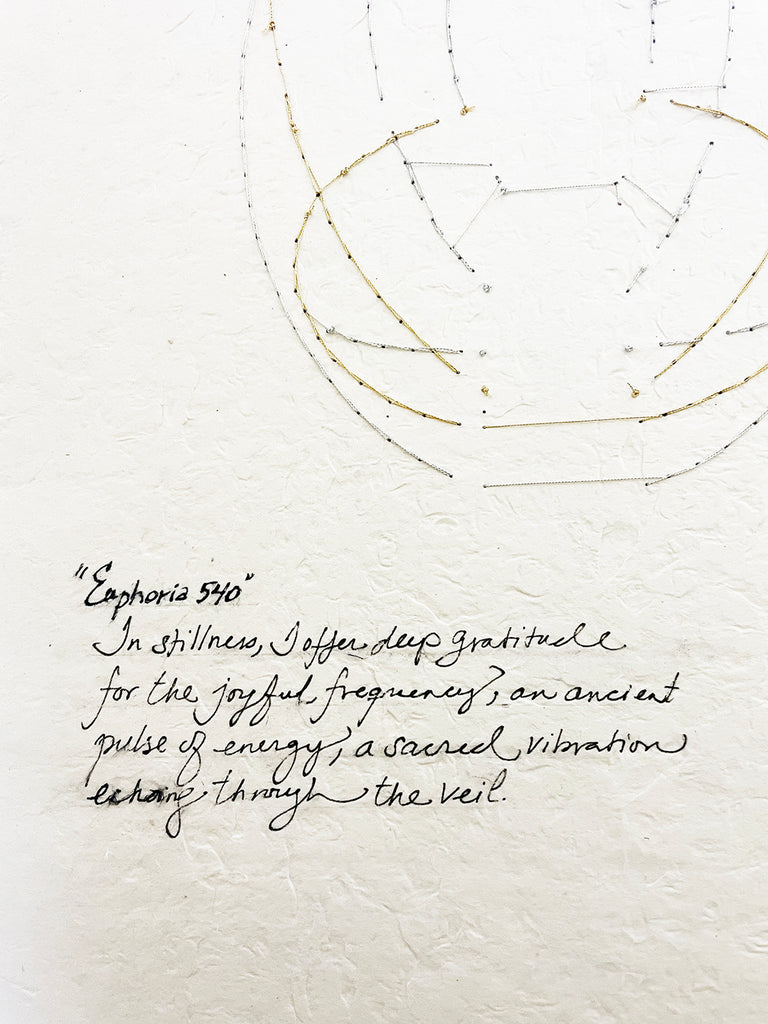 "Euphoria 540"
In stillness, I offer deep gratitude
for the joyful frequency, an ancient
pulse of energy, a sacred vibration
echoing through the veil.